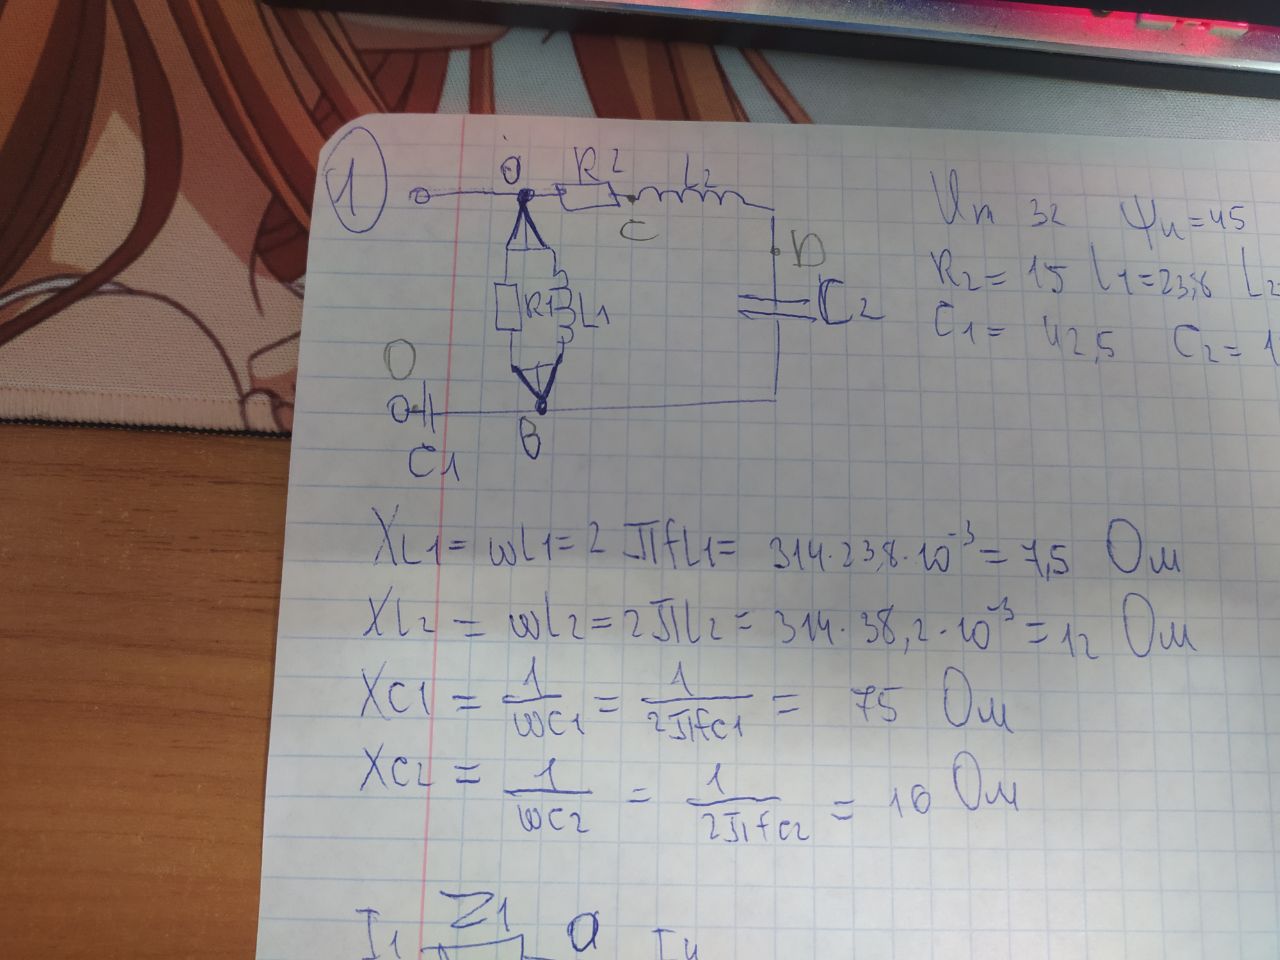 1
a R2 L2
C
D
R1 L1 C2
O
B
C1
Um 32 Ψu = 45
R2 = 15 L1 = 23,8 L2
C1 = 42,5 C2 = 1
XL1 = wL1 = 2πfL1 = 314·23,8·10⁻³ = 7,5 Ом
XL2 = wL2 = 2πL2 = 314·38,2·10⁻³ = 12 Ом
XC1 = 1/wC1 = 1/2πfC1 = 75 Ом
XC2 = 1/wC2 = 1/2πfC2 = 10 Ом
Z1
I1 a I4